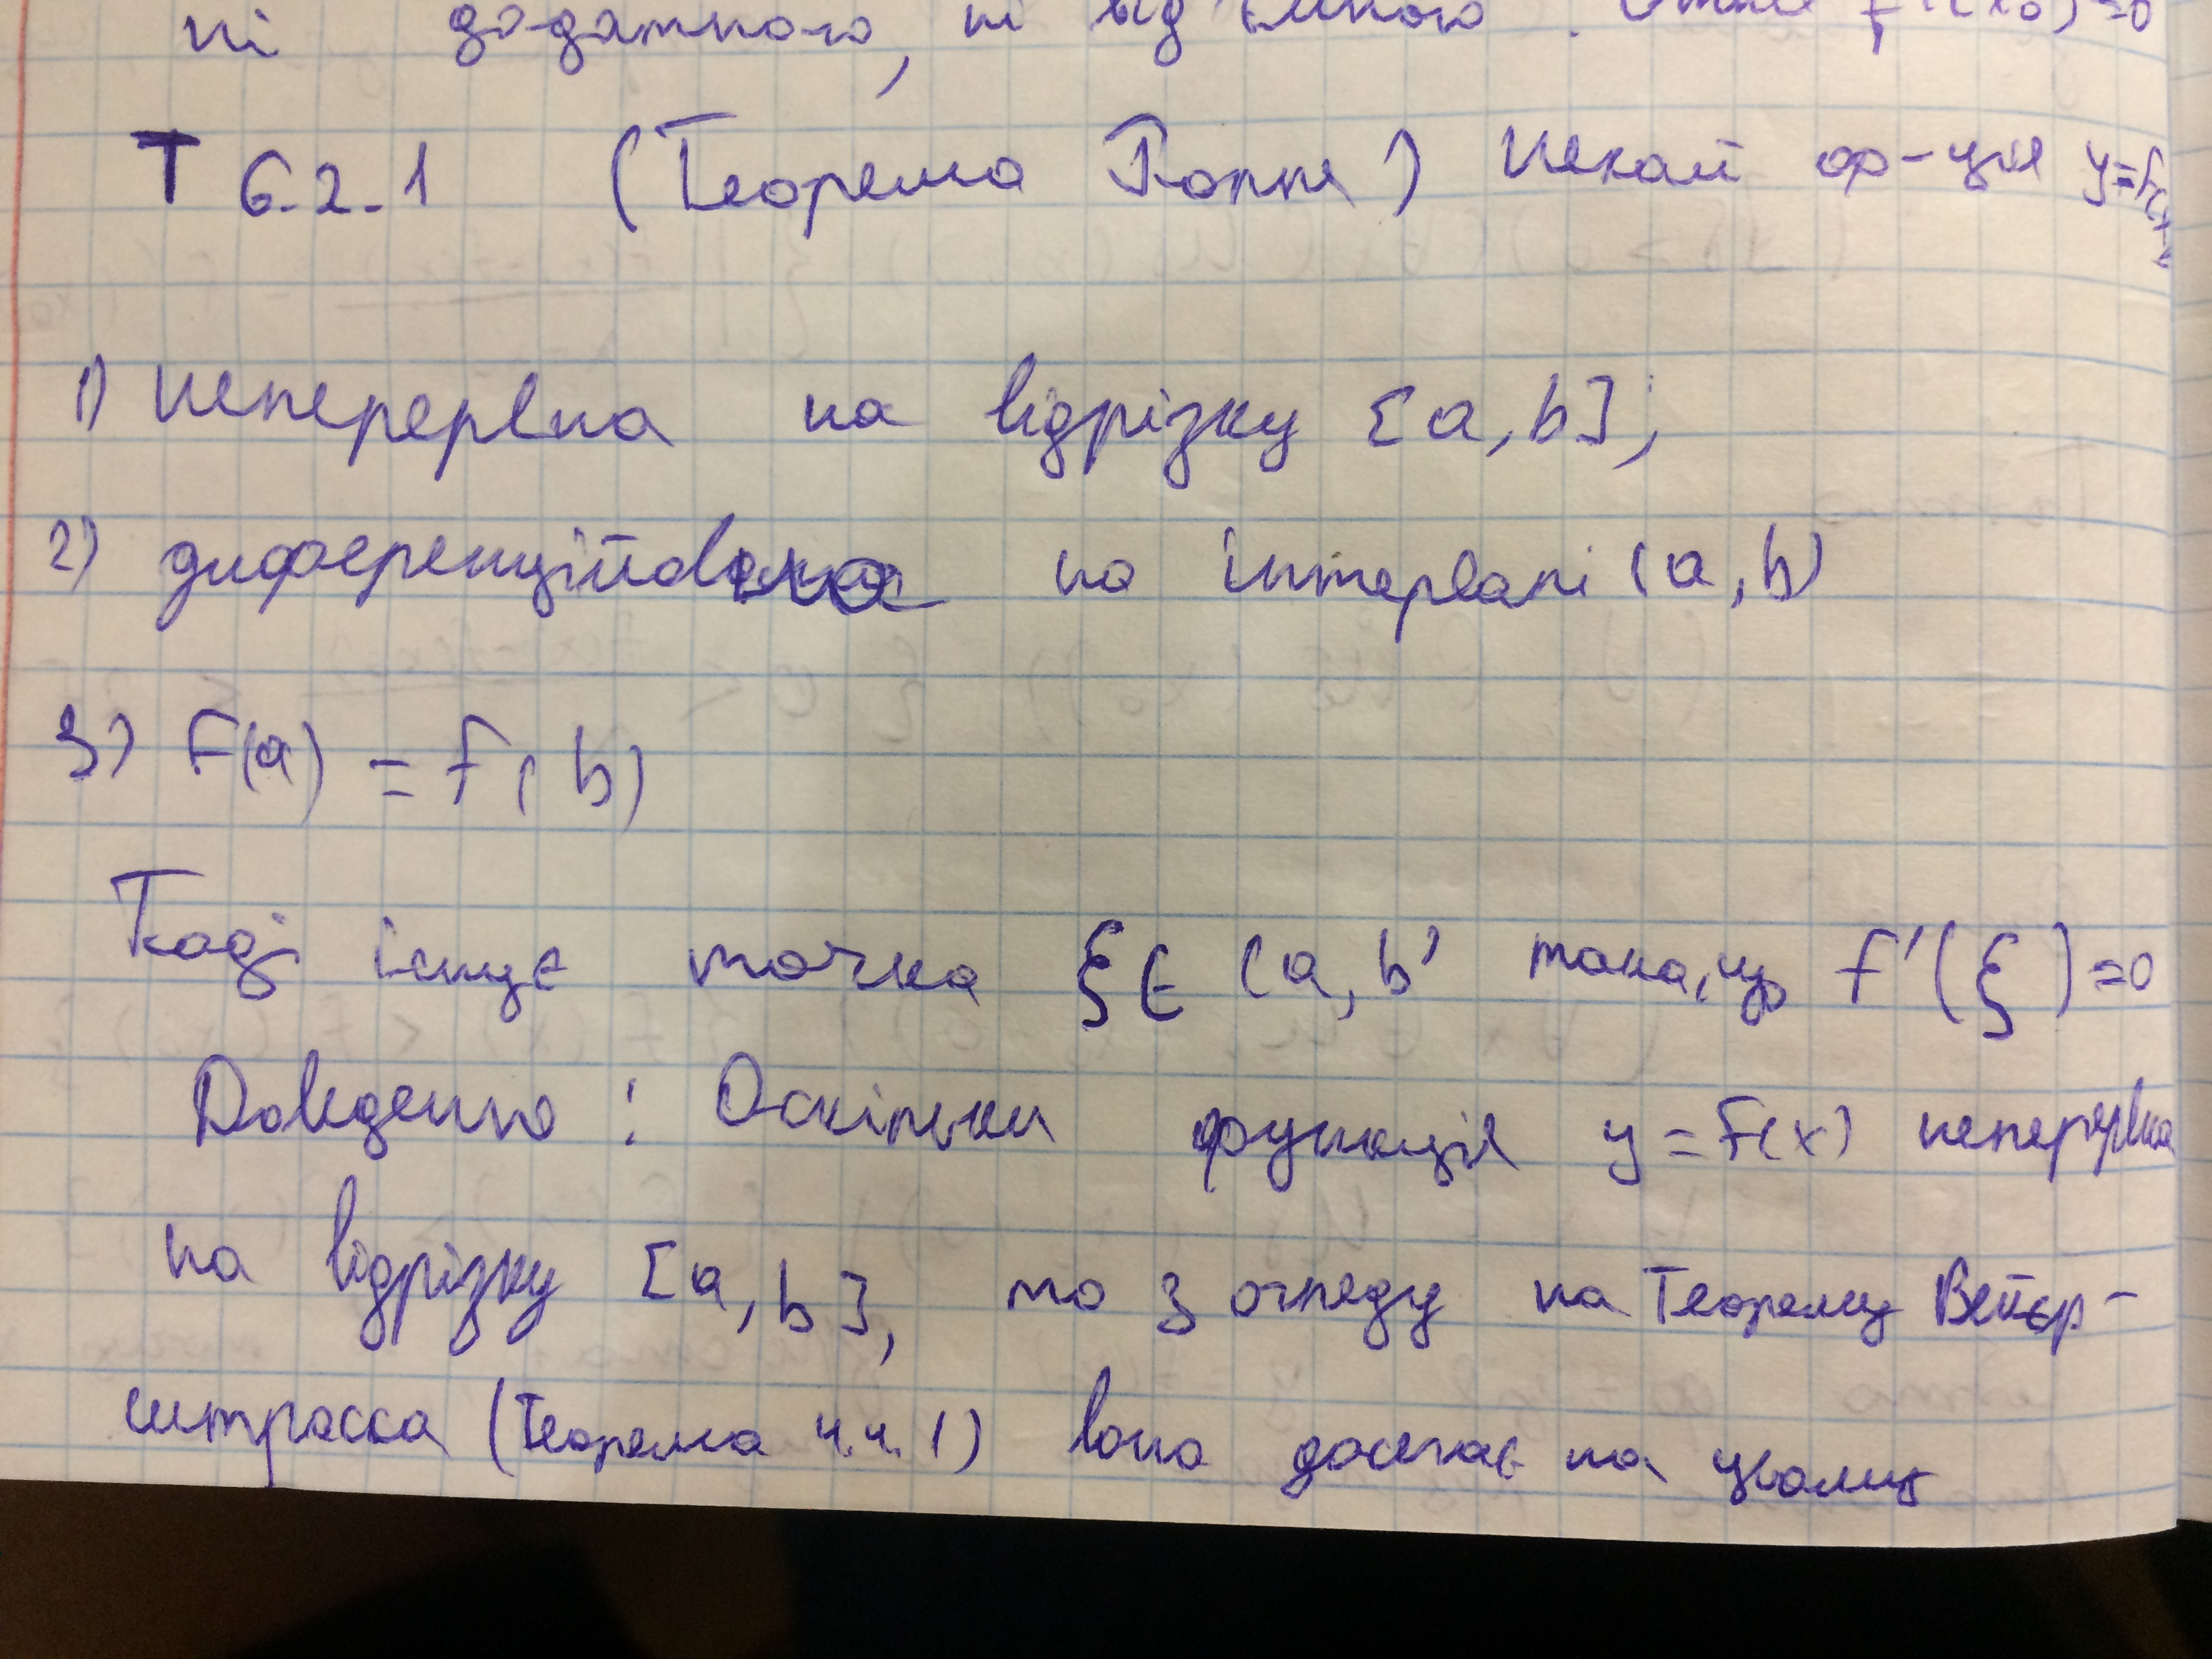 ні додатного, ні від'ємного. Отже f'(x0)=0
Т 6.2.1 (Теорема Ролля) Нехай ф-ція y=f
1) Неперервна на відрізку [a,b];
2) диференційовна на інтервалі (a,b)
3) f(a) = f(b)
Тоді існує точка ξ∈(a,b) така, що f'(ξ)=0
Доведення: Оскільки функція y=f(x) неперервна
на відрізку [a,b], то з огляду на Теорему Вейєр-
штрасса (Теорема 4.4.1) вона досягає на ньому